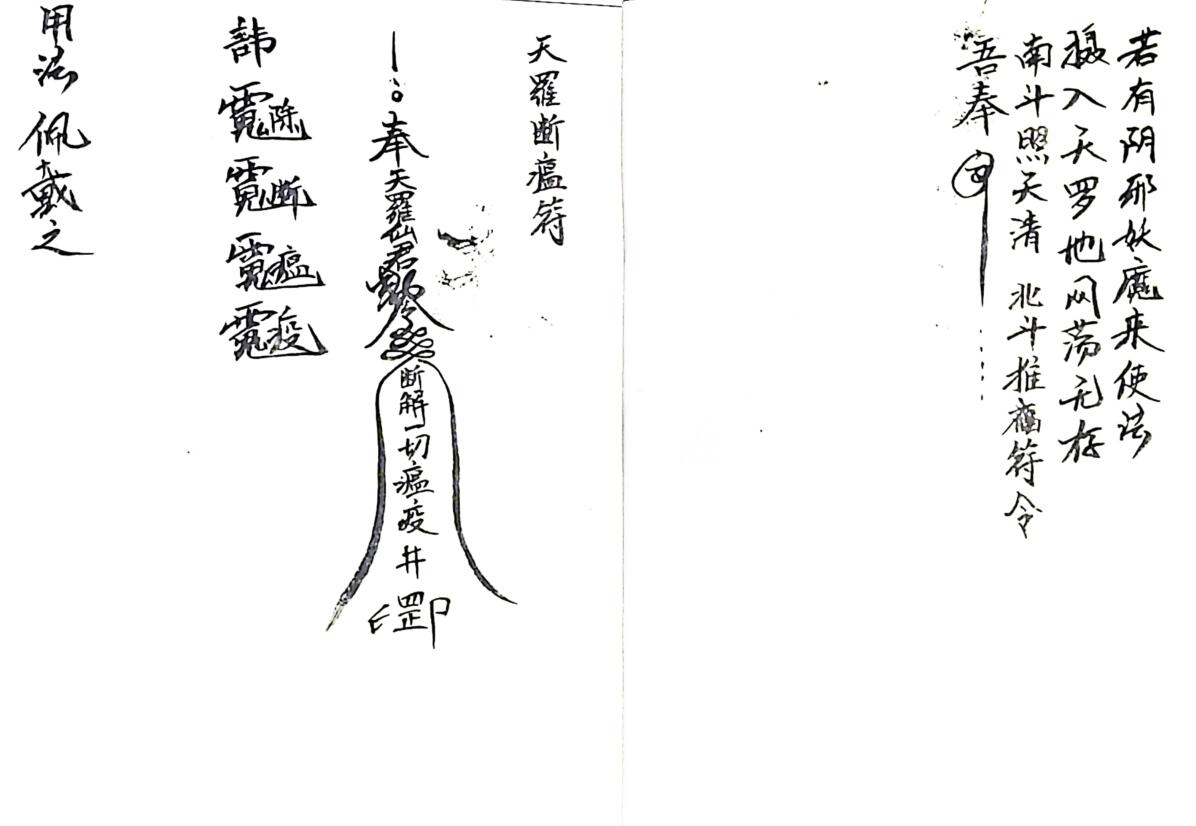 若有阴邪妖魔来使法
摄入天罗地网荡无存
南斗照天清 北斗推瘟符令
吾奉
天羅断瘟符
奉天羅仙君
令
断解一切瘟疫井
罡印
諱
除
断
瘟
疫
用法 佩戴之